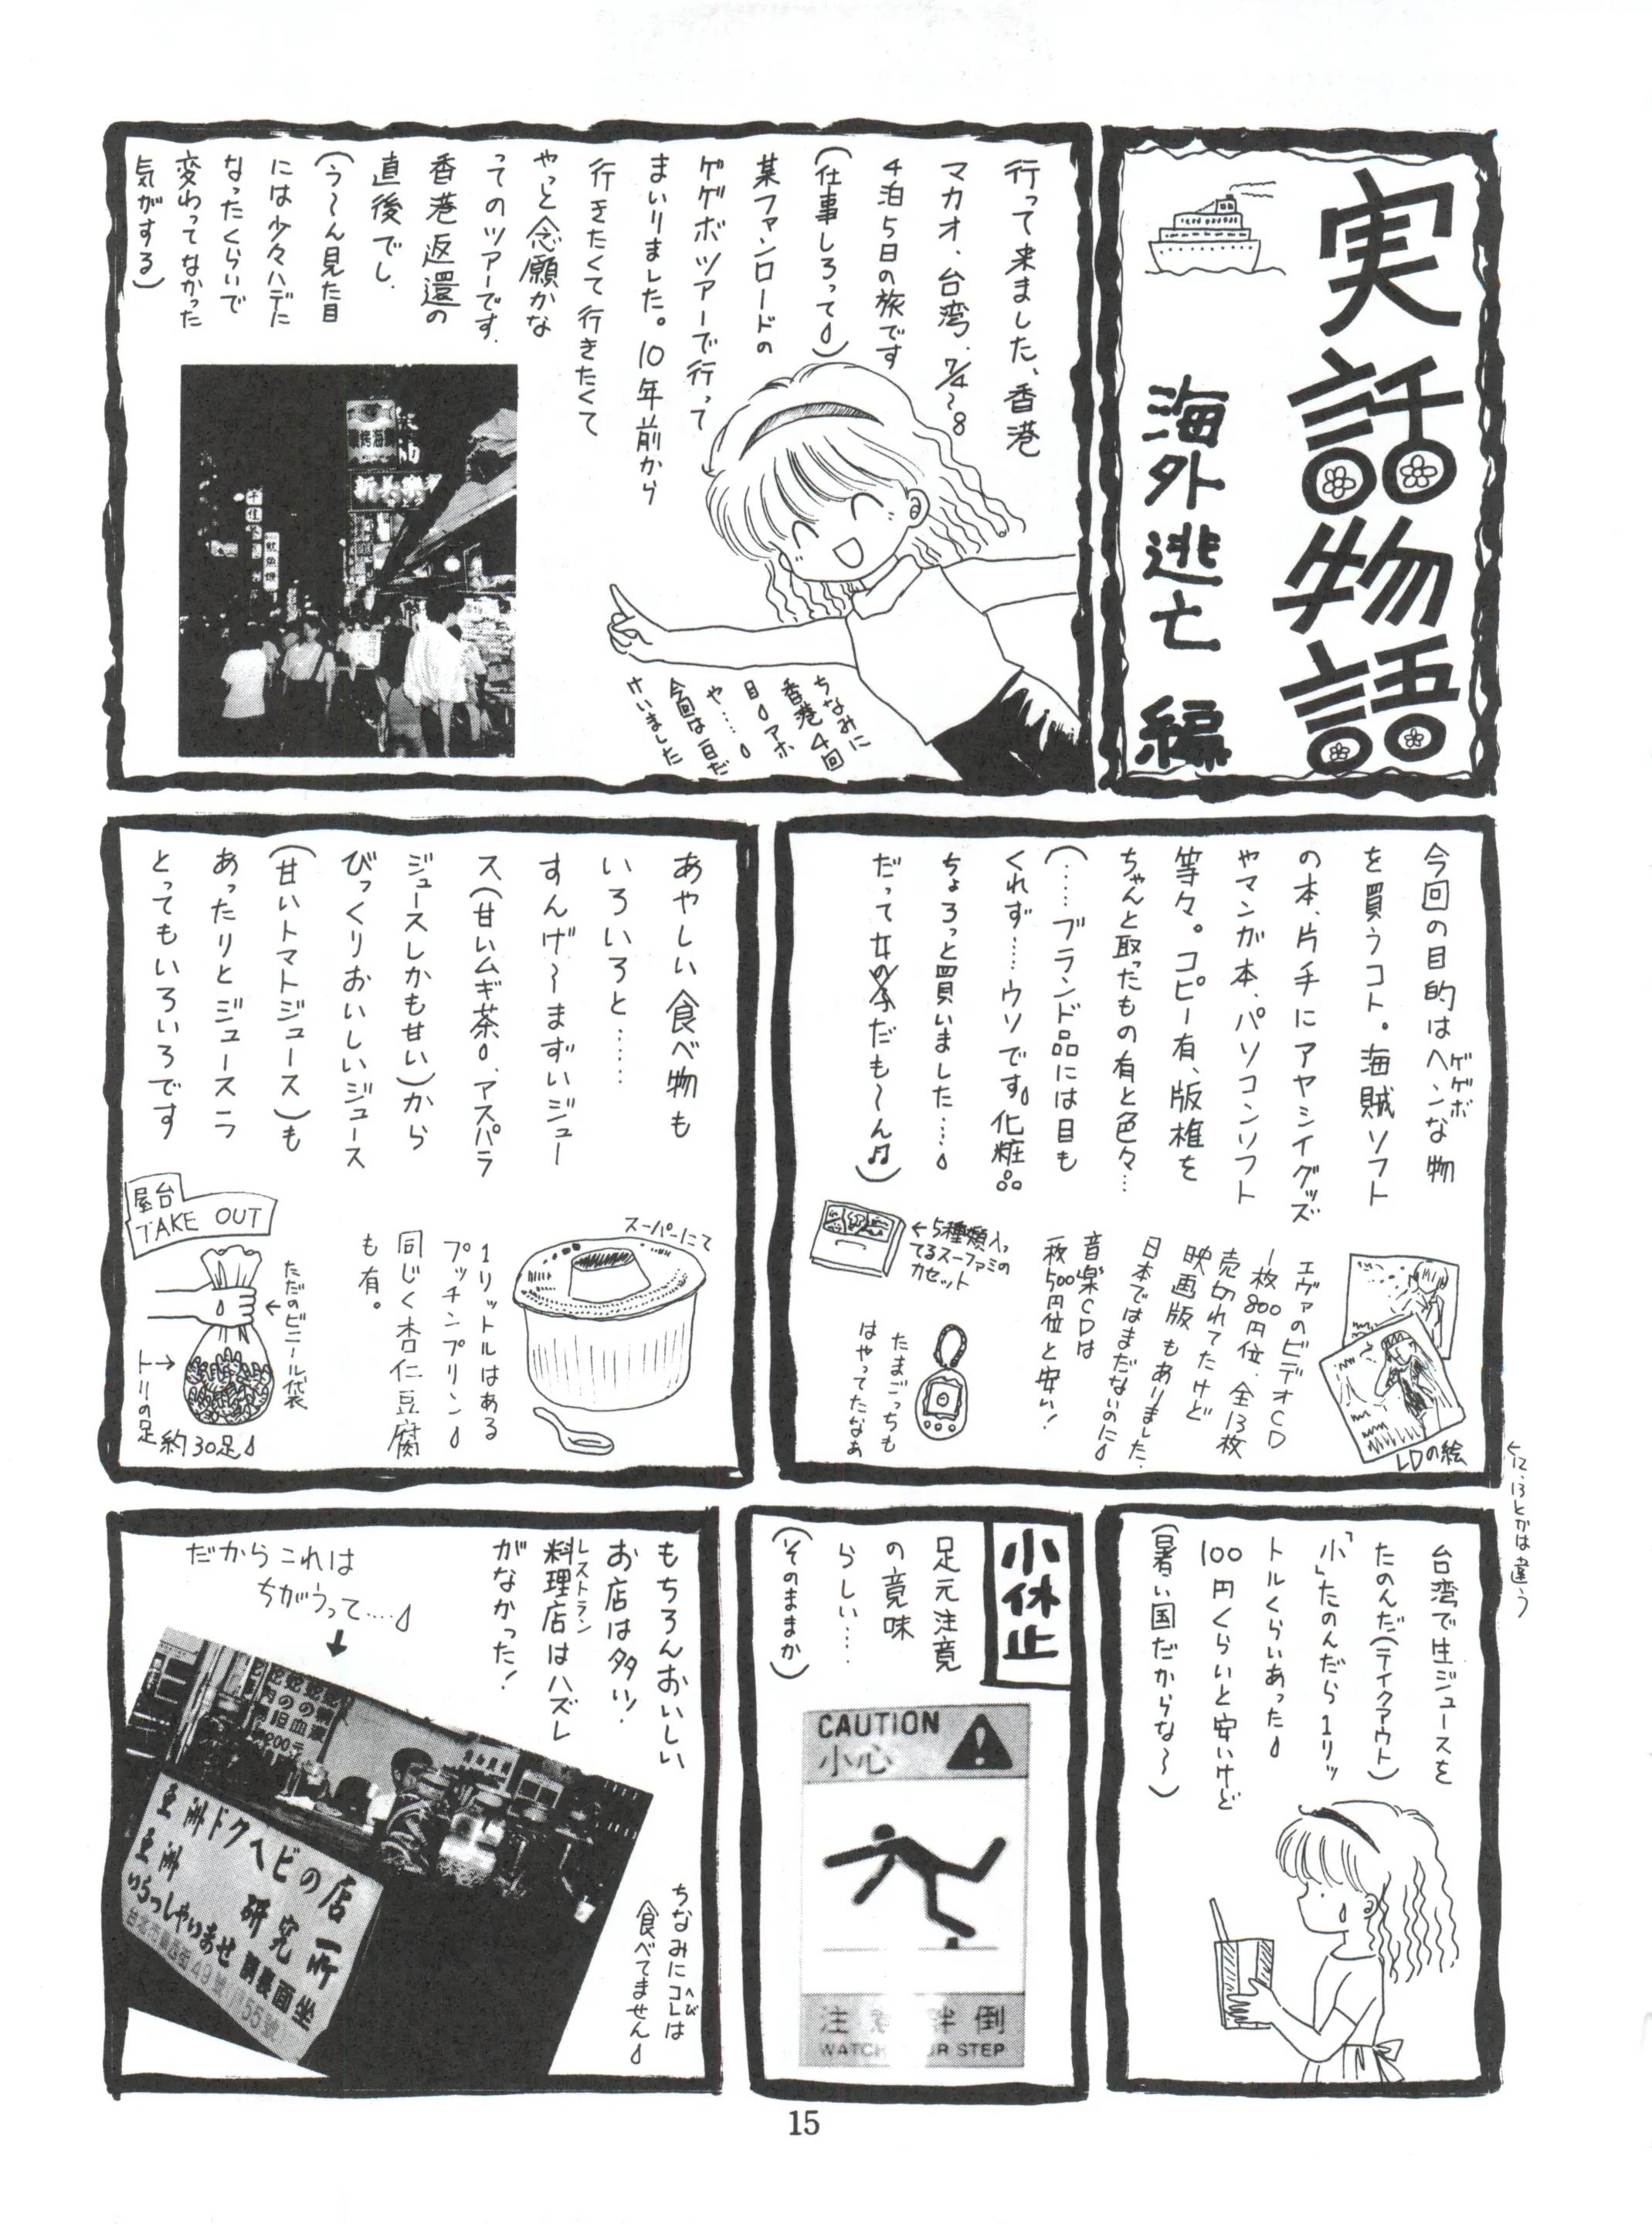 実話物語
海外逃亡 編
行って来ました、香港
マカオ、台湾、7/4~8
4泊5日の旅です
(仕事しろって)
某ファンロードの
ゲゲボツアーで行って
まいりました。10年前から
行きたくて行きたくて
やっと念願かな
ってのツアーです。
香港返還の
直後でし、
(う〜ん見た目
には少々ハデに
なったくらいで
変わってなかった
気がする)
ちなみに
香港4回
目アホ
や……
今回は一日だ
けいました
今回の目的はヘンな物
ゲゲボ
を買うコト。海賊ソフト
の本、片手にアヤシイグッズ
やマンガ本、パソコンソフト
等々。コピー有、版権を
ちゃんと取ったもの有と色々…
(……ブランド品には目も
くれず……ウソです。化粧品
ちょろっと買いました……
だって女の子だも〜ん♫)
エヴァのビデオCD
一枚800円位、全13枚
売切れてたけど
映画版もありました。
日本ではまだないのに
音楽CDは
一枚500円位と安い!
LDの絵
←5種類入っ
てるスーファミの
カセット
たまごっちも
はやってたなあ
あやしい食べ物も
いろいろと……
すんげ〜まずいジュー
ス(甘いムギ茶、アスパラ
ジュースしかも甘い)から
びっくりおいしいジュース
(甘いトマトジュース)も
あったりとジュースラ
とってもいろいろです
スーパーにて
1リットルはある
プッチンプリン
同じく杏仁豆腐
も有。
屋台
TAKE OUT
ただのビニール袋
トリの足
約30足
←12、13とかは違う
台湾で生ジュースを
たのんだ(テイクアウト)
「小」たのんだら1リッ
トルくらいあった
100円くらいと安いけど
(暑い国だからな〜)
小休止
足元注意
の意味
らしい……
(そのままか)
CAUTION
小心
倒
WATCH YOUR STEP
もちろんおいしい
お店は多い!
レストラン
料理店はハズレ
がなかった!
だからこれは
ちがうって……
亜洲ドクヘビの店
亜洲 研究所
いらっしゃいませ 請裏面坐
ちなみにコレは
へび
食べてません
15